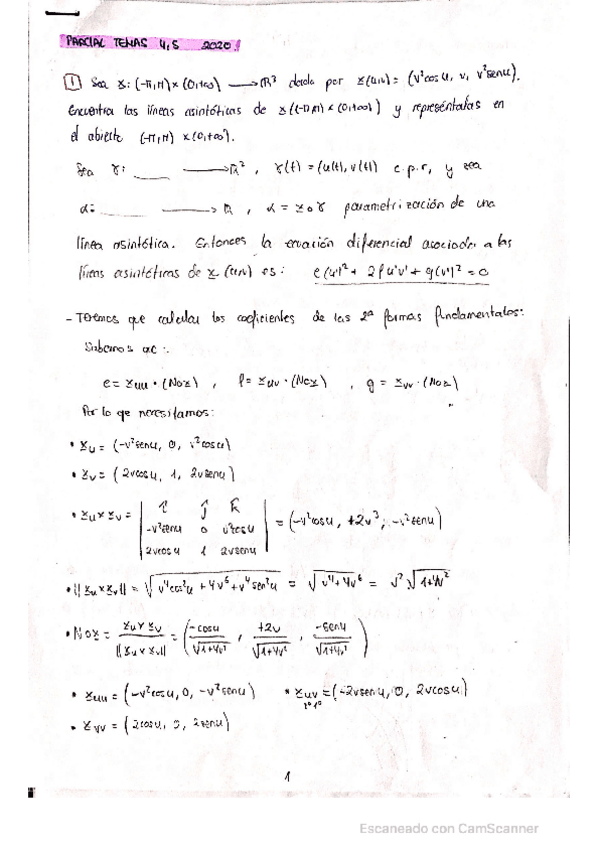 PARCIAL TEMAS 4,5 2020!
1 Sea x: (-π,π)×(0,+∞) ⟶ ℝ³ dada por x(u,v) = (v²cosu, v, v²senu).
Encuentra las líneas asintóticas de x((-π,π)×(0,+∞)) y represéntalas en
el abierto (-π,π)×(0,+∞).
Sea γ: ____ ⟶ ℝ², γ(t) = (u(t), v(t)) c.p.r, y sea
α: ____ ⟶ ℝ, α = x∘γ parametrización de una
línea asintótica. Entonces la ecuación diferencial asociada a las
líneas asintóticas de x(u,v) es: e(u')² + 2fu'v' + g(v')² = 0
- Tenemos que calcular los coeficientes de las 2ª formas fundamentales:
Sabemos
e = xuu · (N∘x), f = xuv · (N∘x), g = xvv · (N∘x)
Por lo que necesitamos:
• xu = (-v²senu, 0, v²cosu)
• xv = (2vcosu, 1, 2vsenu)
• xu × xv = | i j k
-v²senu 0 v²cosu
2vcosu 1 2vsenu | = (-v²cosu, +2v³, -v²senu)
• ||xu × xv|| = √(v⁴cos²u + 4v⁶ + v⁴sen²u) = √(v⁴ + 4v⁶) = v²√(1+4v²)
• N∘x = (xu × xv)/||xu × xv|| = (-cosu/√(1+4v²), +2v/√(1+4v²), -senu/√(1+4v²))
• xuu = (-v²cosu, 0, -v²senu) • xuv = (-2vsenu, 0, 2vcosu)
1º 1º
• xvv = (2cosu, 0, 2senu)
1
Escaneado con CamScanner